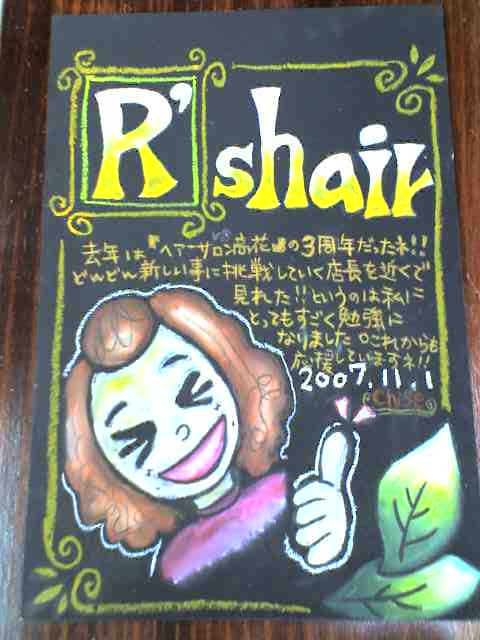 R's hair
去年は『ヘアーサロン高花』の3周年だったネ!!
どんどん新しい事に挑戦していく店長を近くで
見れた!!というのは私に
とってもすごく勉強に
なりました。これからも
応援していますネ!!
2007.11.1
chise